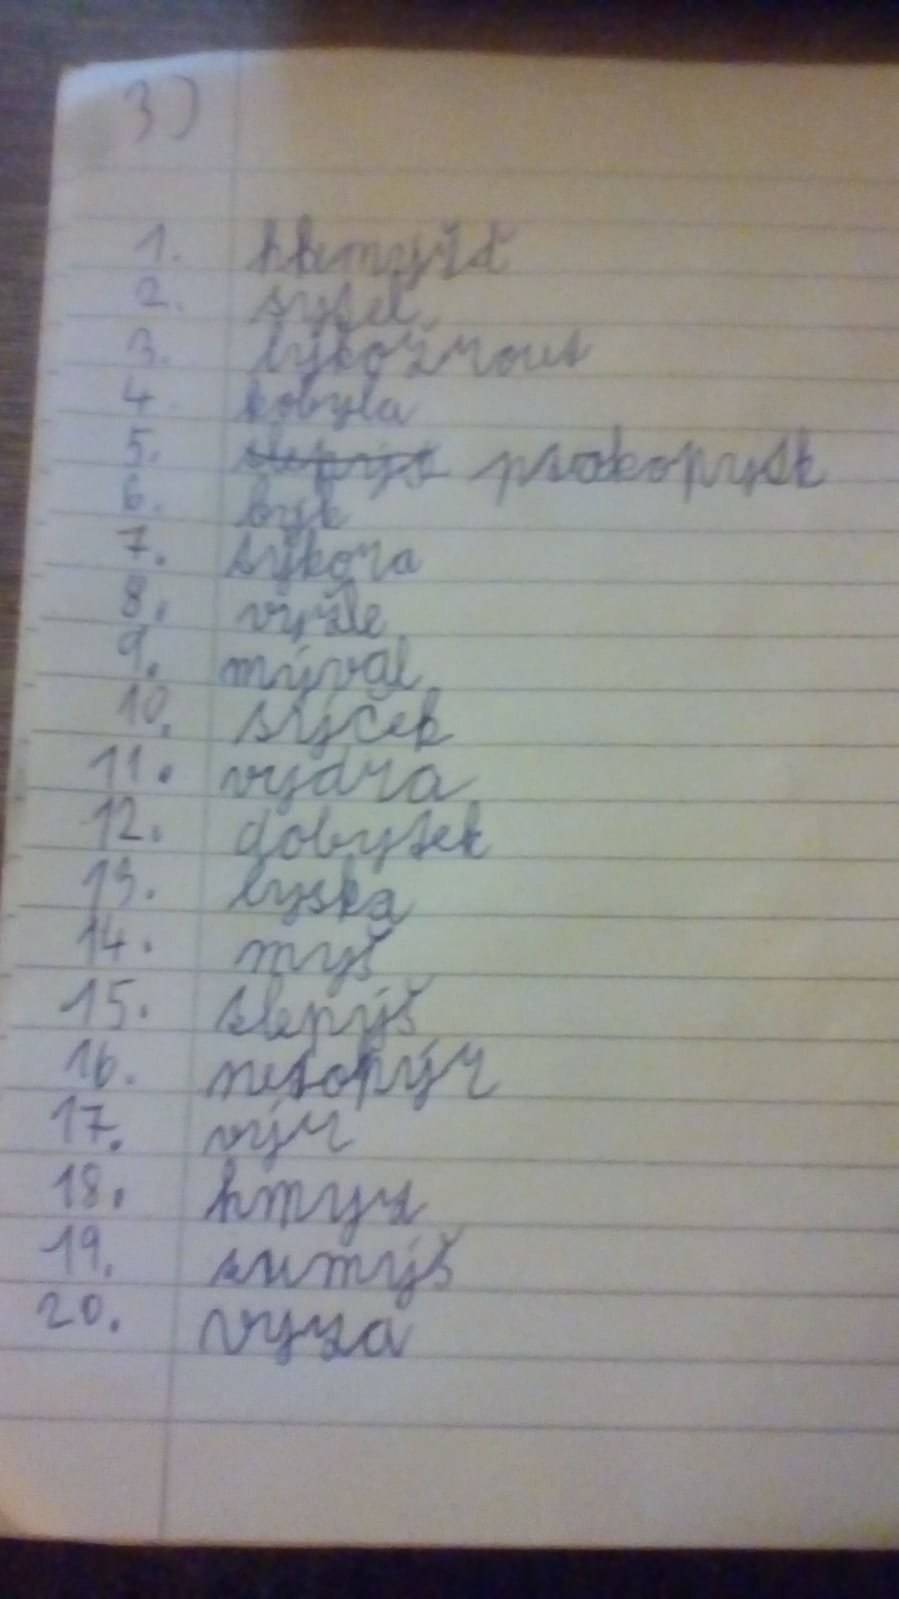 3)
1. hlemýžď
2. sysel
3. lýkožrout
4. kobyla
5. slepýš ptakopysk
6. býk
7. sýkora
8. vyžle
9. mýval
10. sýček
11. vydra
12. dobytek
13. lyska
14. myš
15. slepýš
16. netopýr
17. výr
18. hmyz
19. sumýš
20. vyza